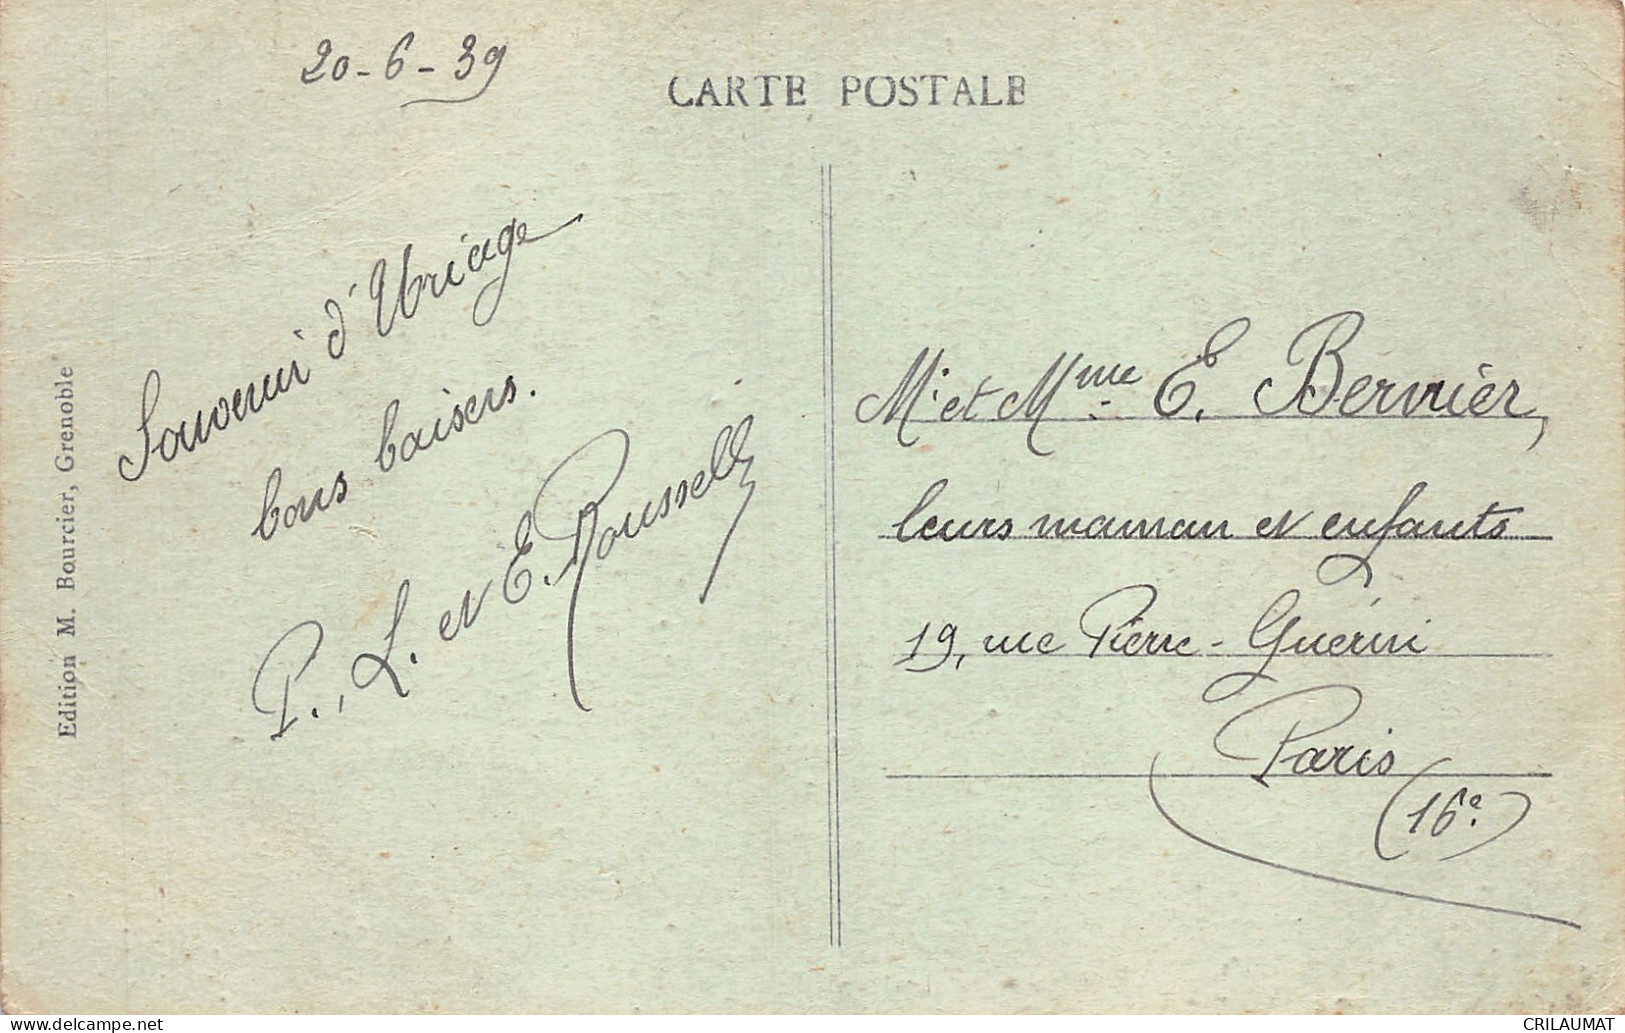 20-6-39
CARTE POSTALE
Souvenir d'Uriage
bons baisers.
P., L. et E. Roussell
Edition M. Bourcier, Grenoble
Mr et Mme E. Bernier,
leurs maman et enfants
19, rue Pierre-Guérin
Paris
(16e.)
CRILAUMAT